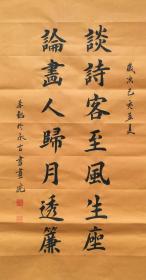 歲次己亥孟夏
談詩客至風生座
論畫人歸月透簾
於永吉書畫院